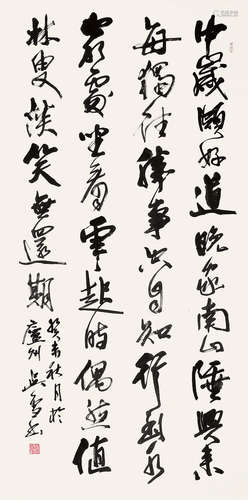 中歲頗好道晚家南山陲興來
每獨往勝事空自知行到水
窮處坐看雲起時偶然值
林叟談笑無還期
癸未秋月於
廬州吳雪書